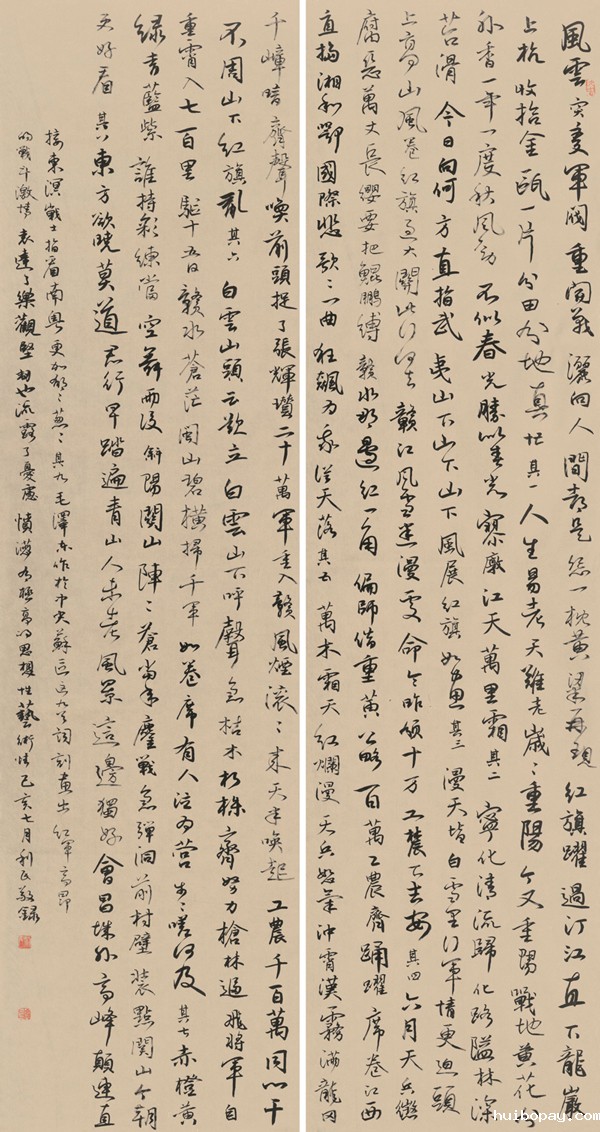 風雲突變軍閥重開戰灑向人間都是怨一枕黃粱再現紅旗躍過汀江直下龍巖
上杭收拾金甌一片分田分地真忙其一人生易老天難老歲〻重陽今又重陽戰地黃花分
外香一年一度秋風勁不似春光勝似春光寥廓江天萬里霜其二寧化清流歸化路隘林深
苔滑今日向何方直指武夷山下山下山下風展紅旗如畫其三漫天皆白雪里行軍情更迫頭
上高山風卷紅旗過大關此行何去贛江風雪迷漫處命令昨頒十万工農下吉安其四六月天兵征
腐惡萬丈長纓要把鯤鵬縛贛水那邊紅一角偏師借重黃公略百萬工農齊踴躍席卷江西
直搗湘和鄂國際悲歌〻一曲狂飆為我從天落其五萬木霜天紅爛漫天兵怒氣沖霄漢霧滿龍岡
千嶂暗齊聲喚前頭捉了張輝瓚二十萬軍重入贛風煙滾〻來天半喚起工農千百萬同心干
不周山下紅旗亂其六白雲山頭云欲立白雲山下呼聲急枯木朽株齊努力槍林逼飛將軍自
重霄入七百里驅十五日贛水蒼茫閩山碧橫掃千軍如卷席有人泣為營步〻嗟何及其七赤橙黃
綠青藍紫誰持彩練當空舞雨後斜陽關山陣〻蒼當年鏖戰急彈洞前村壁裝點關山今朝
更好看其八東方欲曉莫道君行早踏遍青山人未老風景這邊獨好會昌城外高峰顛連直
接東溟戰士指看南粵更加郁〻蔥〻其九毛澤東作於中央蘇區這九首詞刻畫出紅軍高昂
的戰斗激情表達了樂觀堅韌也流露了憂慮憤懣極高的思想性藝術性己亥七月利民敬錄
huibopay.com